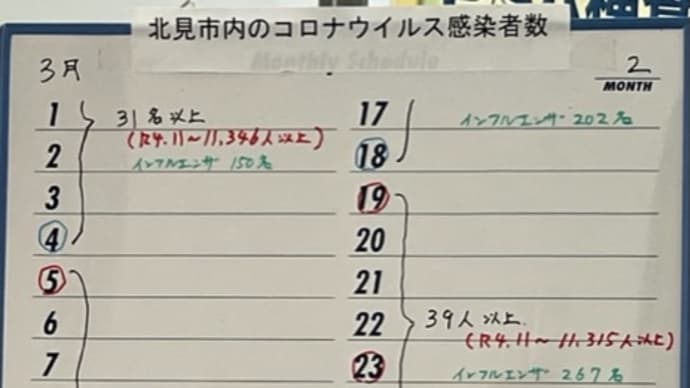 北見市内のコロナウイルス感染者数
Monthly Schedule
3月
2
MONTH
1
31名以上
(R4.11~11,346人以上)
2
インフルエンザ 150名
3
4
5
6
7
17
インフルエンザ 202名
18
19
20
21
22
39人以上
(R4.11~11,315人以上)
23
インフルエンザ 267名